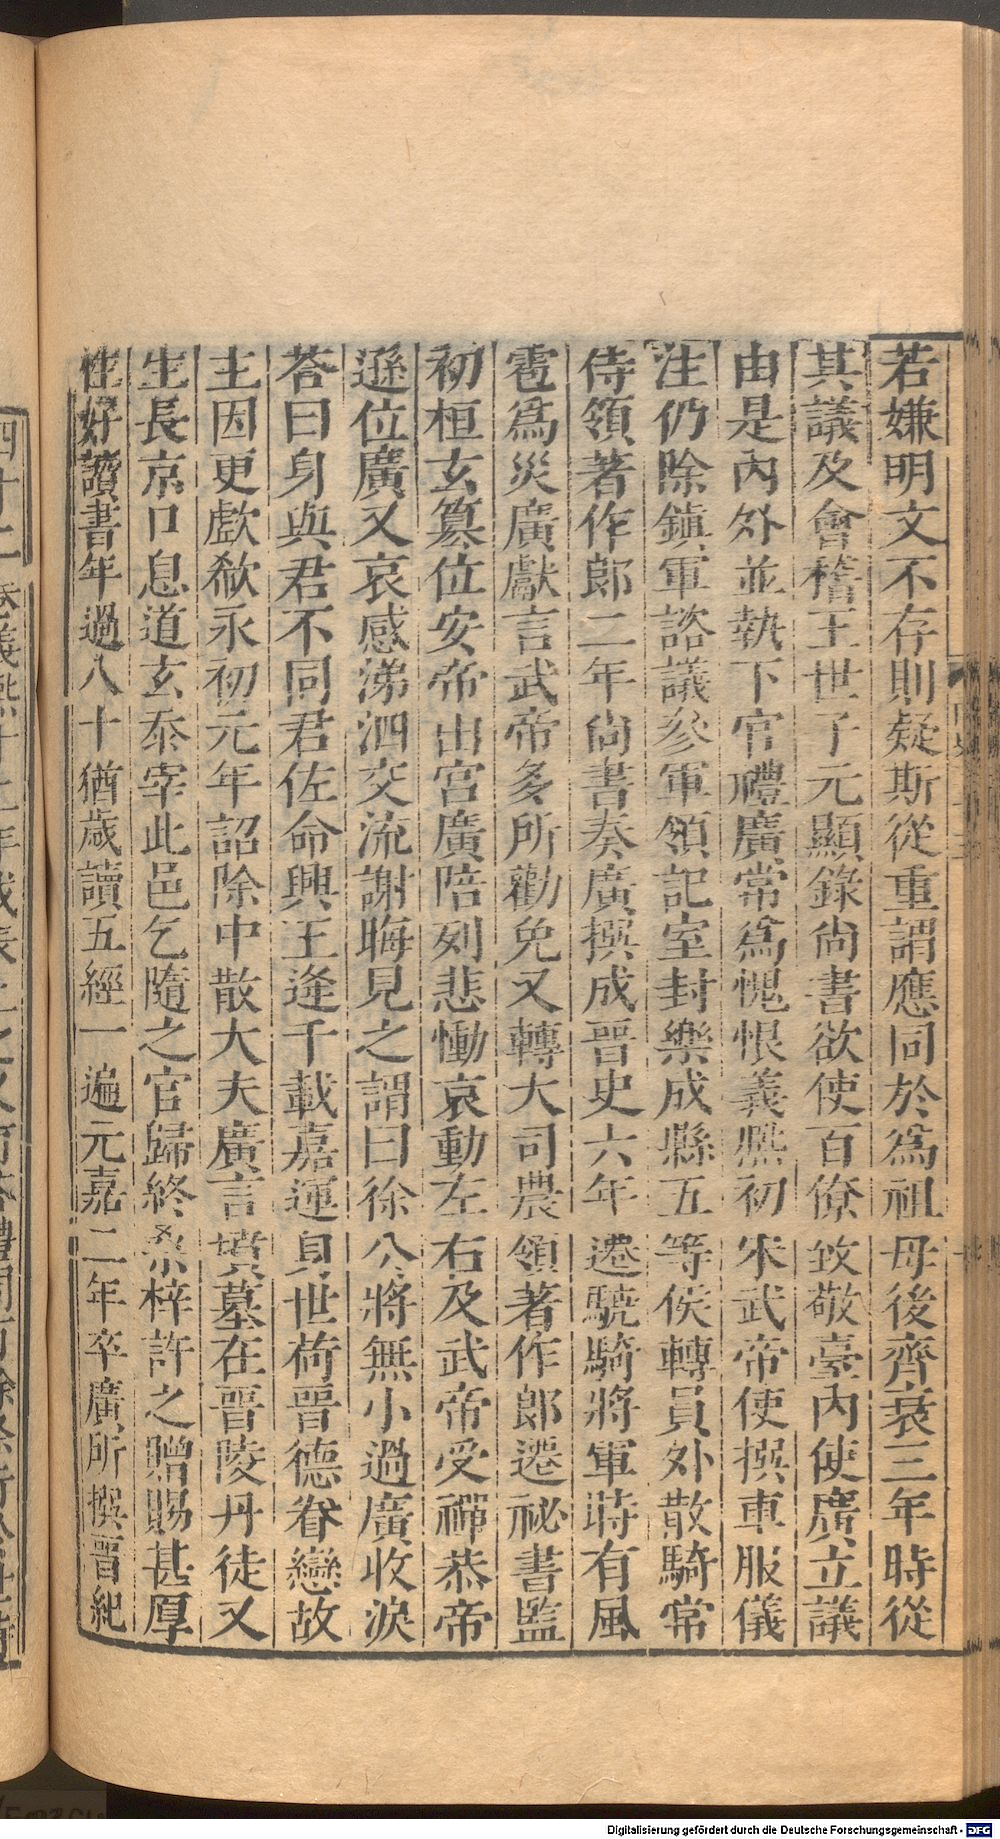 若嫌明文不存則疑斯從重謂應同於爲祖母後齊衰三年時從
其議及會稽王世子元顯錄尚書欲使百僚致敬臺內使廣立議
由是內外並執下官禮廣常爲愧恨義熙初宋武帝使撰車服儀
注仍除鎮軍諮議參軍領記室封樂成縣五等侯轉員外散騎常
侍領著作郎二年尚書奏廣撰成晉史六年遷驍騎將軍時有風
雹爲災廣獻言武帝多所勸免又轉大司農領著作郎遷祕書監
初桓玄篡位安帝出宮廣陪列悲慟哀動左右及武帝受禪恭帝
遜位廣又哀感涕泗交流謝晦見之謂曰徐公將無小過廣收淚
荅曰身與君不同君佐命興王逢千載嘉運身世荷晉德眷戀故
主因更歔欷永初元年詔除中散大夫廣言墳墓在晉陵丹徒又
生長京口息道玄忝宰此邑乞隨之官歸終桑梓許之贈賜甚厚
性好讀書年過八十猶歲讀五經一遍元嘉二年卒廣所撰晉紀
Digitalisierung gefördert durch die Deutsche Forschungsgemeinschaft - DFG